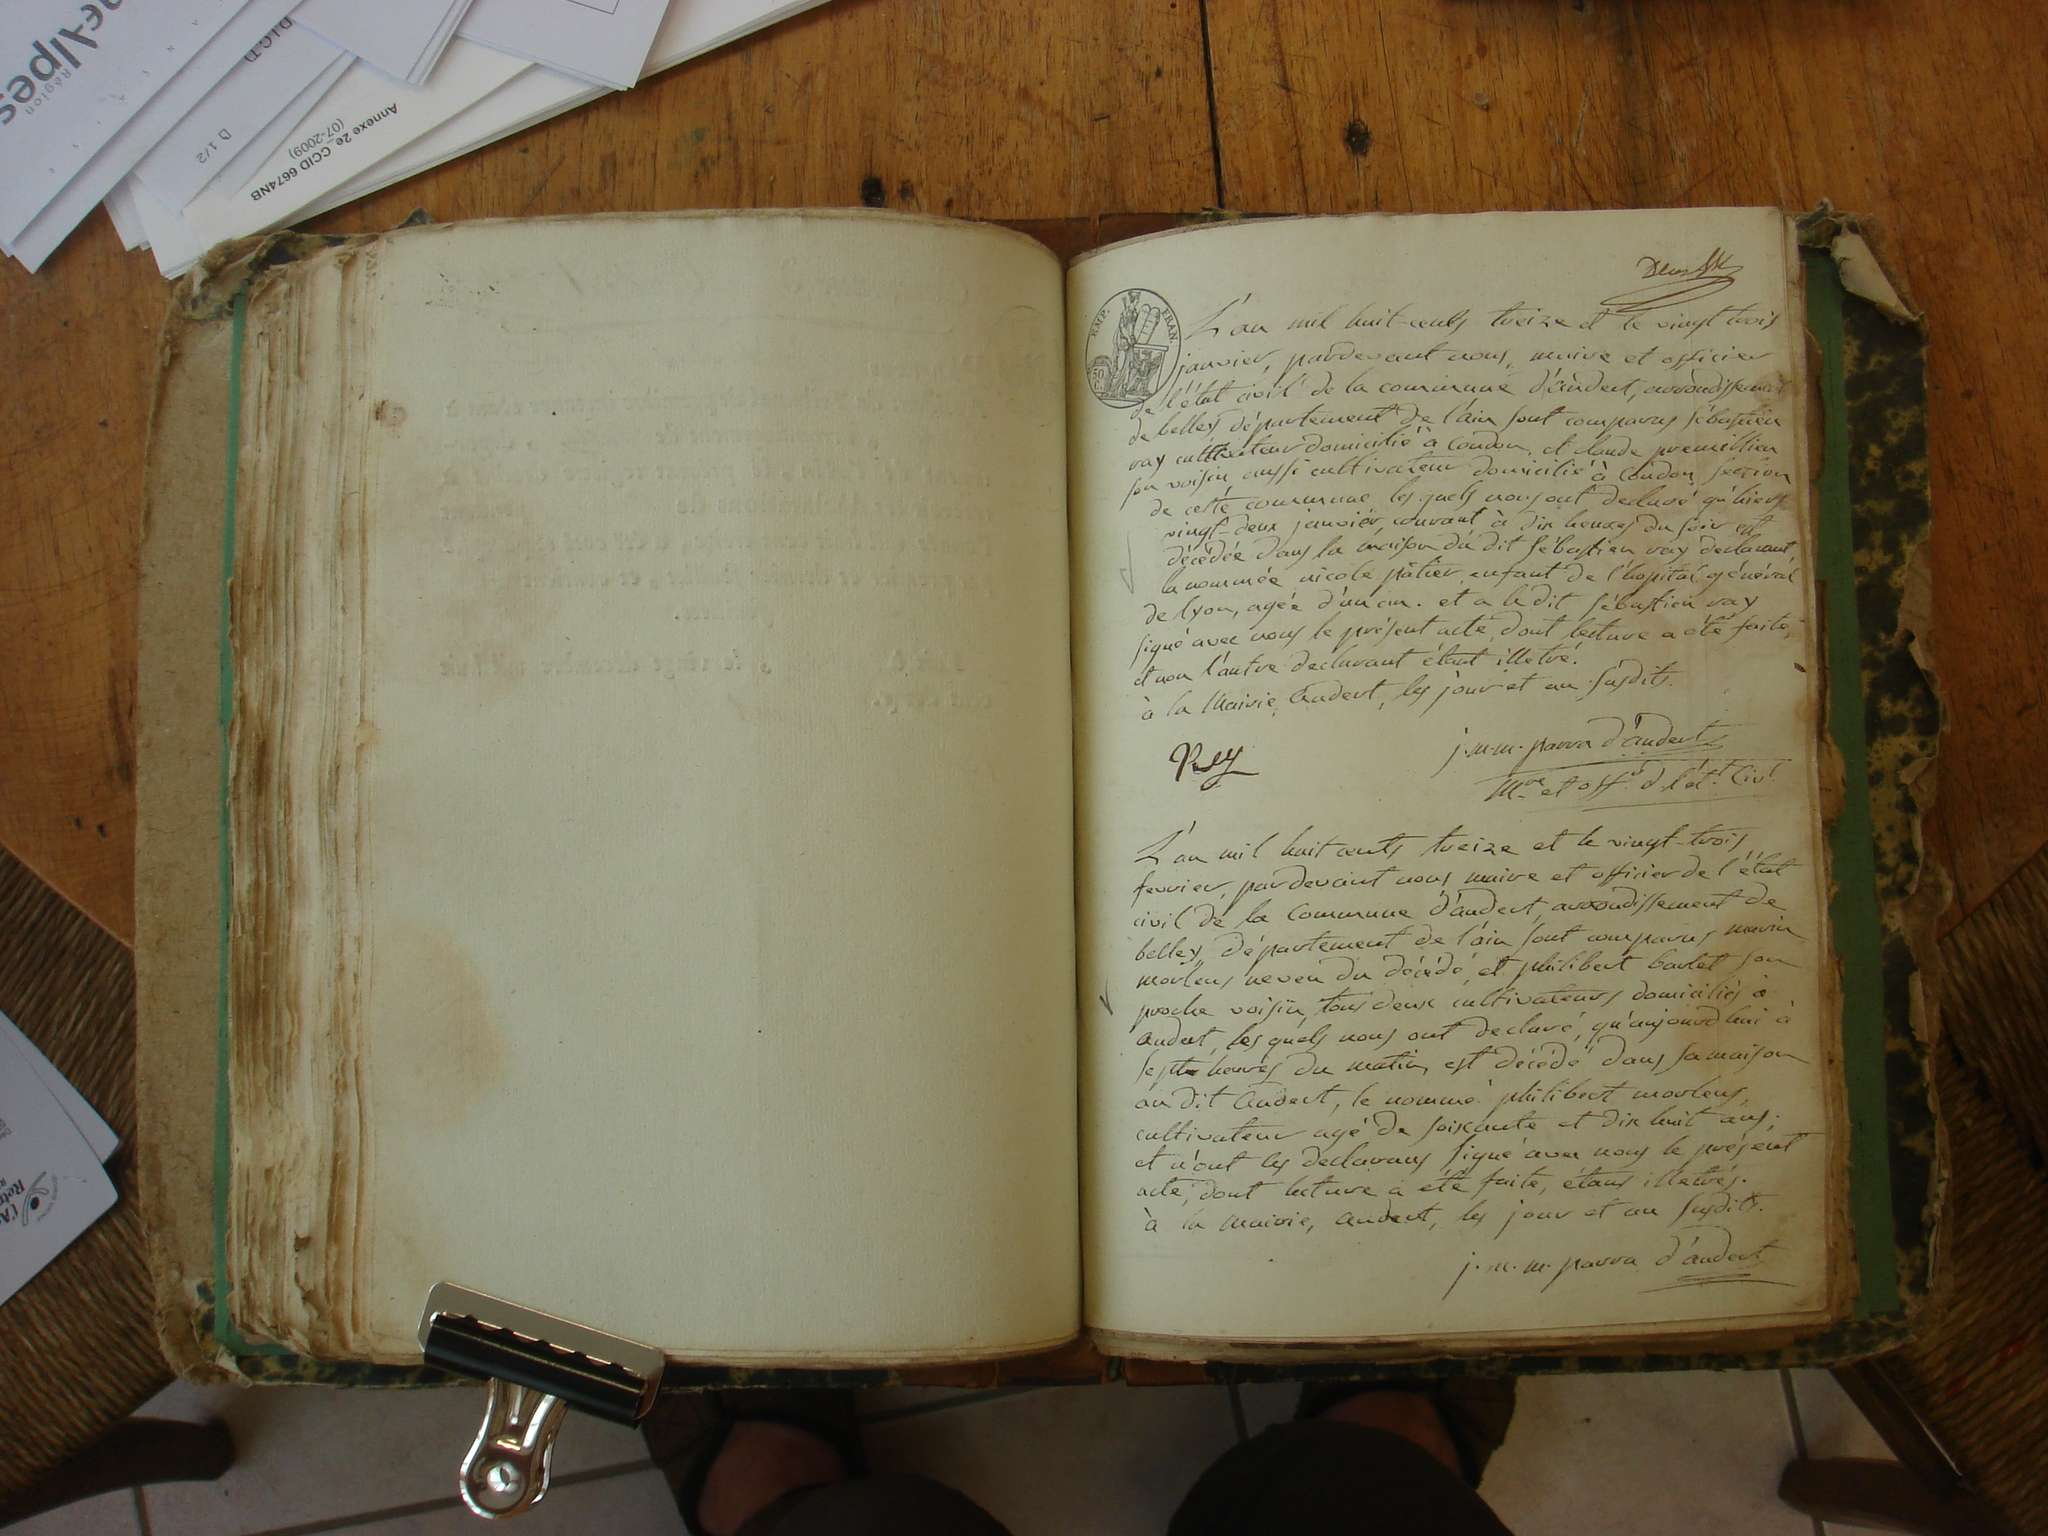 Région
D.I.C.T.D
D 1/2
Annexe 2e_CCID 6674NB
(07-2009)
EMP. FRAN.
50 C.
L'an mil huit-cents treize et le vingt trois
janvier, pardevant nous, maire et officier
de l'état civil de la commune d'andert, arrondissement
de belley département de l'ain sont comparus sébastien
ray cultivateur domicilié à Condon, et claude premillien
son voisin aussi cultivateur domicilié à Condon section
de cette commune, les quels nous ont declaré qu'hier
vingt-deux janvier courant à dix heures du soir est
décédée dans la maison du dit sébastien ray declarant,
la nommée nicole pâtier enfant de l'hopital général
de lyon, agée d'un an. et a le dit sébastien ray
signé avec nous le présent acte, dont lecture a été faite,
et non l'autre declarant étant illetré.
à la Mairie, Andert, les jour et an susdits.
j. m. m. parra d'andert
Mre et offr d l'ét.t Civl
L'an mil huit cents treize et le vingt-trois
fevrier, pardevant nous maire et officier de l'état
civil de la Commune d'andert, arrondissement de
belley département de l'ain sont comparus marin
morlens neveu du décédé et philibert barlet son
proche voisin, tous deux cultivateurs domiciliés à
andert, les quels nous ont declaré, qu'aujourdhui à
sept heures du matin, est décédé dans sa maison
au dit Andert, le nommé philibert morlens,
cultivateur agé de soixante et dix huit ans,
et n'ont les declarans signé avec nous le présent
acte, dont lecture a été faite, étans illettrés.
à la mairie, andert, les jour et an susdits.
j. m. m. parra d'andert